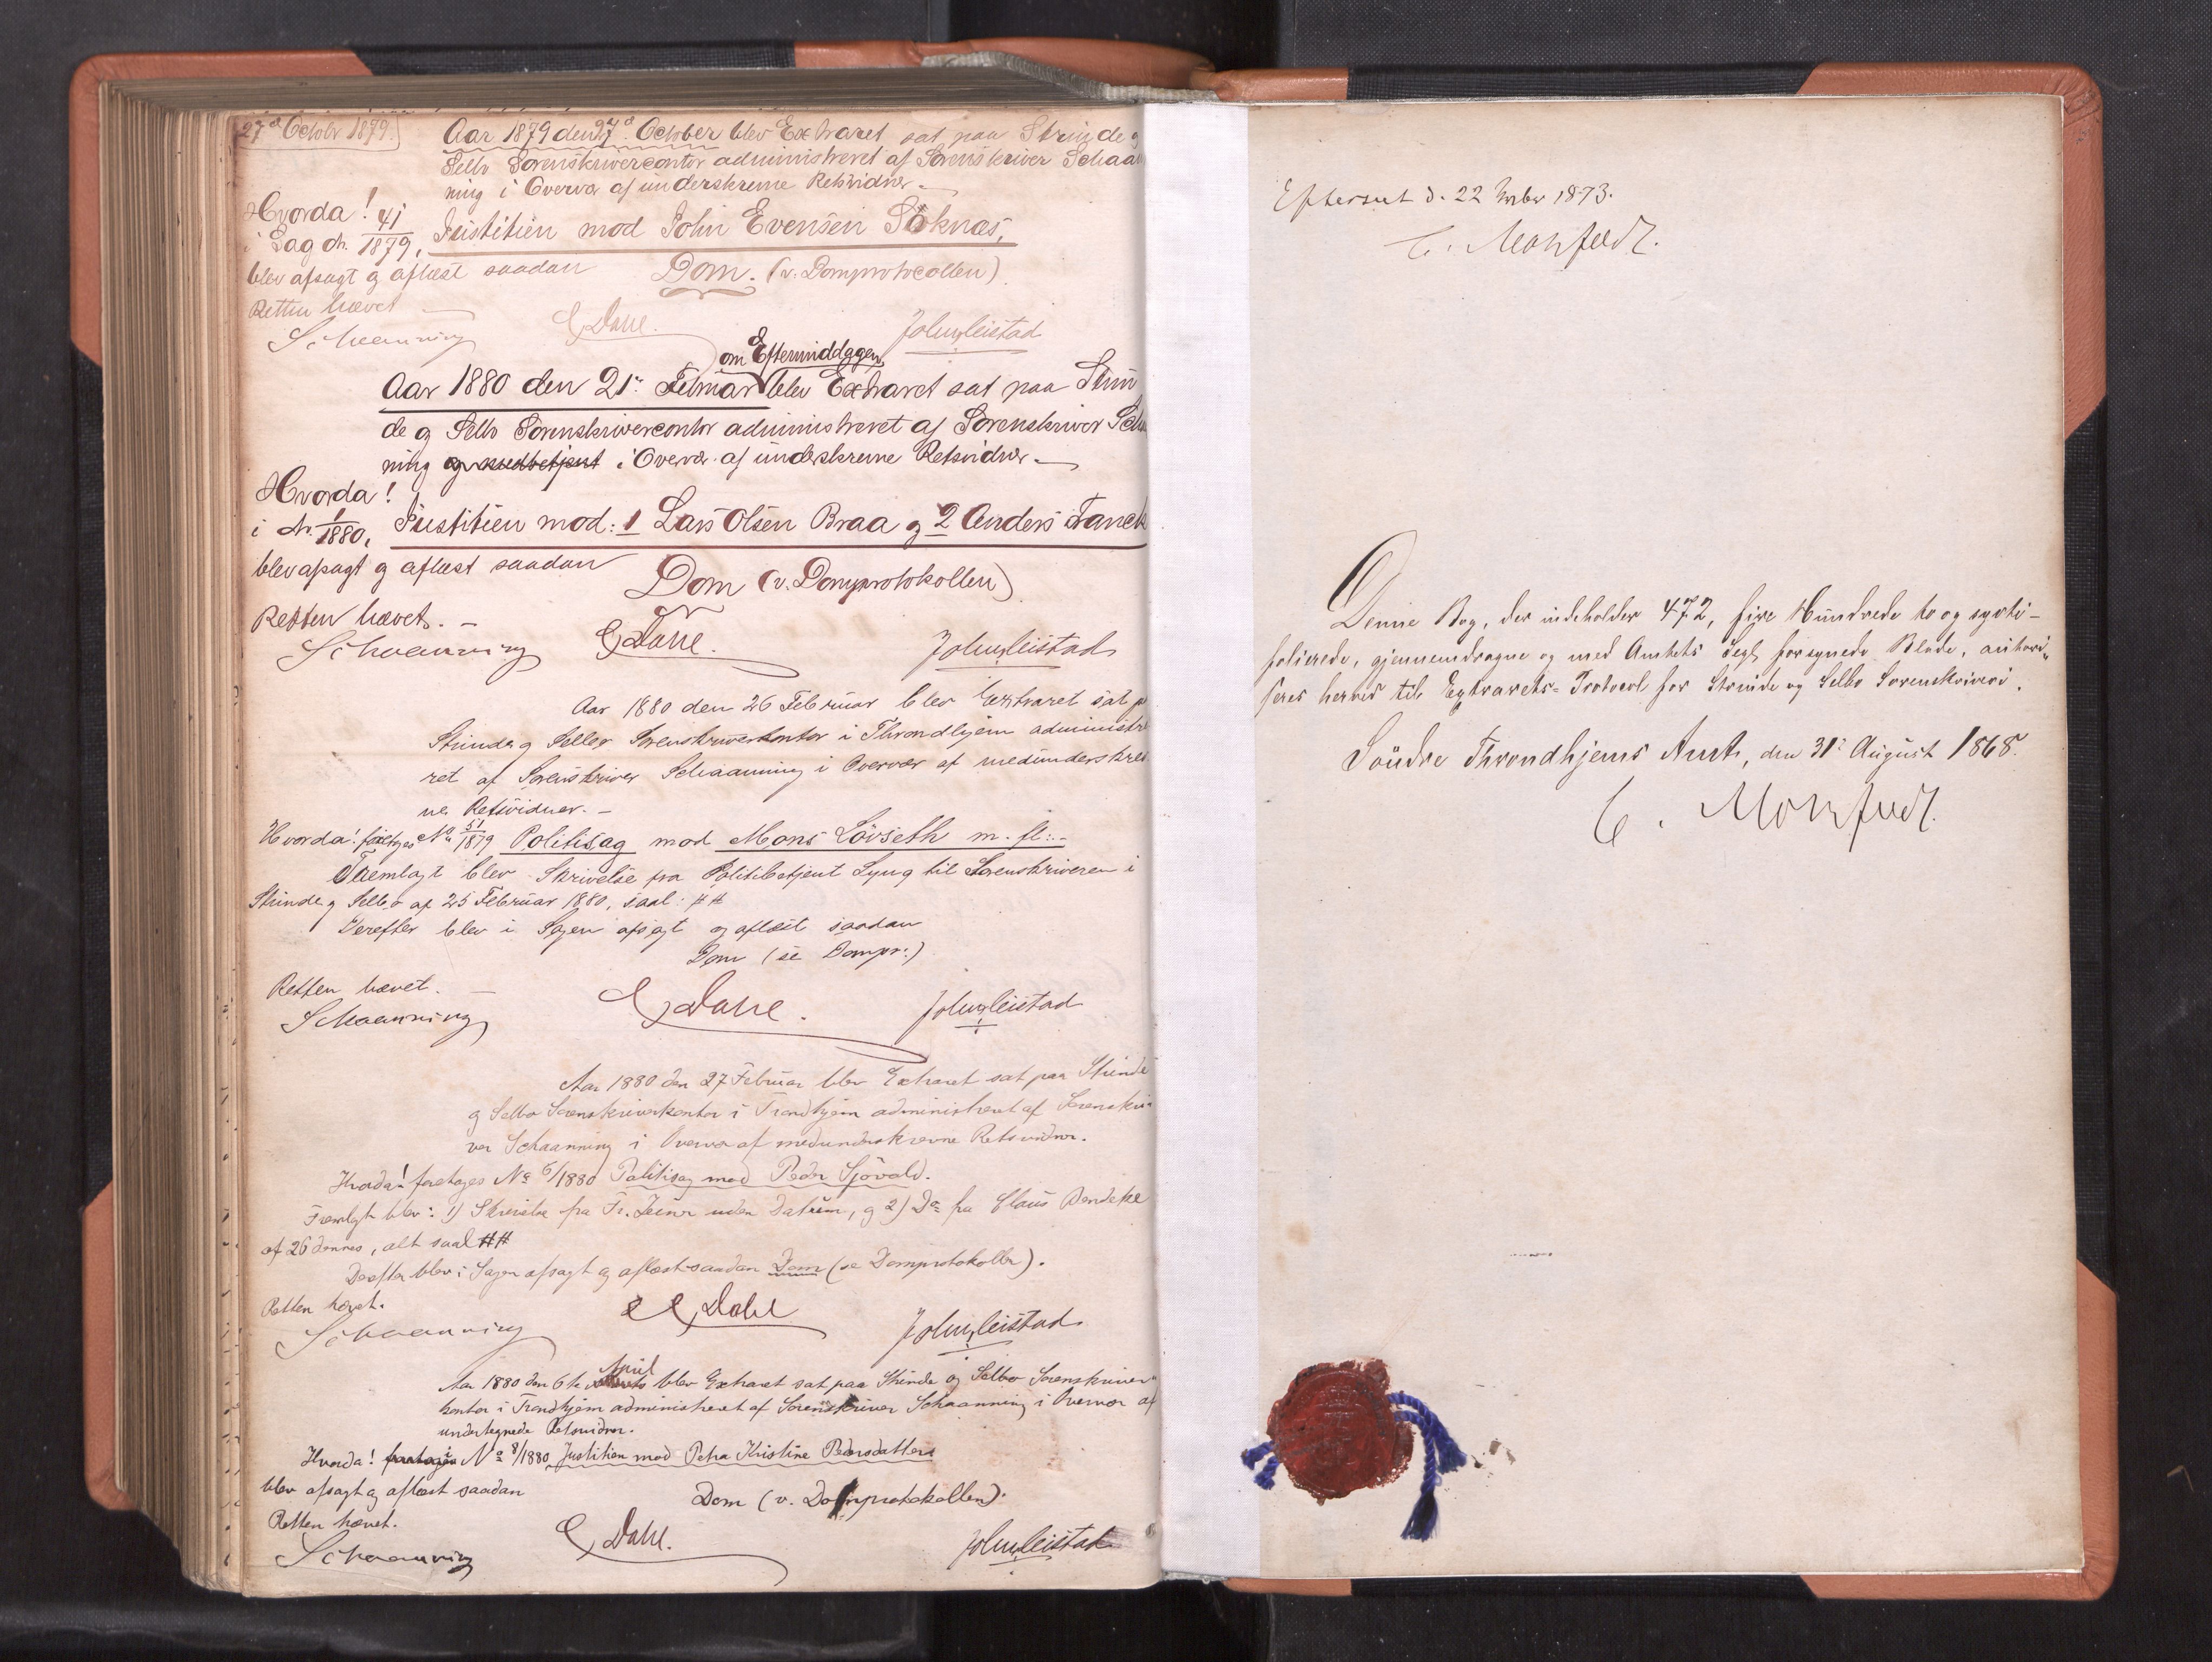 27d October 1879.
Aar 1879 den 27d October blev Extraret sat paa Strinde og
Selbo Sorenskrivercontor administreret af Sorenskriver Schaan
ning i Overvær af underskrevne Retsvidner.
Hvorda!
i Sag No. 41/1879, Justitien mod John Evensen Söknæs,
blev afsagt og aflæst saadan Dom. (v. Domprotocollen)
Retten hævet
Schaanning E Dahl. John Leistad
om Eftermiddagen
Aar 1880 den 21de Februar blev Extraret sat paa Strin
de og Selbo Sorenskrivercontor administreret af Sorenskriver Scha
ning og medbetjent i Overvær af underskrevne Retsvidner.
Hvorda!
i No. 1/1880, Justitien mod: 1 Lars Olsen Braa og 2 Anders
blev afsagt og aflæst saadan Dom (v. Domprotokollen)
Retten hævet. -
Schaanning E Dahl. John Leistad
Aar 1880 den 26 Februar blev Extraret sat p
Strinde og Selbo Sorenskriverkontor i Throndhjem administre
ret af Sorenskriver Schaanning i Overvær af medunderskrev
ne Retsvidner. -
Hvorda! foretoges No 51/1879 Politisag mod Mons Lövseth m. fl: -
Fremlagt blev Skrivelse fra Politibetjent Lyng til Sorenskriveren i
Strinde og Selbo af 25 Februar 1880, saal: ##
Derefter blev i Sagen afsagt og aflæst saadan
Dom (se Dompr:)
Retten hævet. -
Schaanning E Dahl. John Leistad
Aar 1880 den 27 Februar blev Extraret sat paa Strinde
og Selbo Sorenskriverkontor i Trondhjem administreret af Sorenskri
ver Schaanning i Overvær af medunderskrevne Retsvidner.
Hvorda! foretoges No 6/1880 Politisag mod Peder Sjövold.
Fremlagt blev: 1) Skrivelse fra Fr. uden Datum, og 2) Do fra Claus Bendeke
af 26 dennes, alt saal ##
Derefter blev i Sagen afsagt og aflæst saadan Dom (se Domprotokollen).
Retten hævet.
Schaanning E Dahl John Leistad
April
Aar 1880 den 6te blev Extraret sat paa Strinde og Selbo Sorenskriver
kontor i Trondhjem administreret af Sorenskriver Schaanning i Overvær af
undertegnede Retsvidner.
Hvorda! foretoges i No 8/1880 Justitien mod Petra Kristine Pedersdatter
blev afsagt og aflæst saadan Dom (v. Domprotokollen).
Retten hævet.
Schaanning E Dahl. John Leistad
Efterseet d. 22 1873.
C. Mohrfeldt.
Denne Bog, der indeholder 472, fire Hundrede to og sytti -
folierede, gjennemdragne og med Amtets Segl forsynede Blade, autori
seres herved til Extrarets-Protocol for Strinde og Selbo Sorenskriveri.
Söndre Throndhjems Amt, den 31te August 1868.
C. Mohrfeldt.